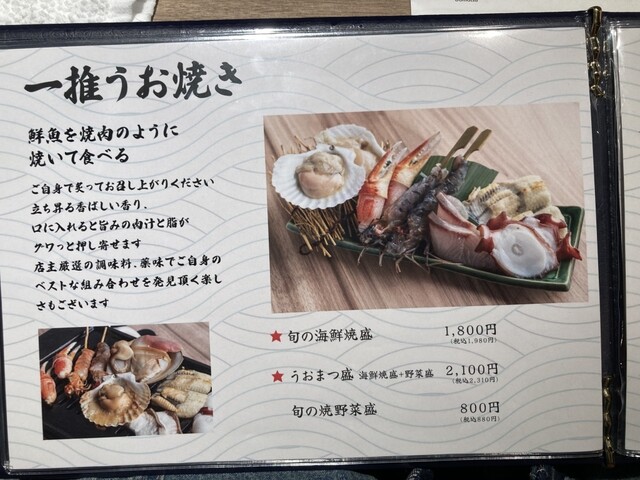 一推うお焼き
鮮魚を焼肉のように
焼いて食べる
ご自身で炙ってお召し上がりください
立ち昇る香ばしい香り、
口に入れると旨みの肉汁と脂が
グワっと押し寄せます
店主厳選の調味料、薬味でご自身の
ベストな組み合わせを発見頂く楽し
さもございます
★旬の海鮮焼盛 1,800円
(税込1,980円)
★うおまつ盛 海鮮焼盛+野菜盛 2,100円
(税込2,310円)
旬の焼野菜盛 800円
(税込880円)